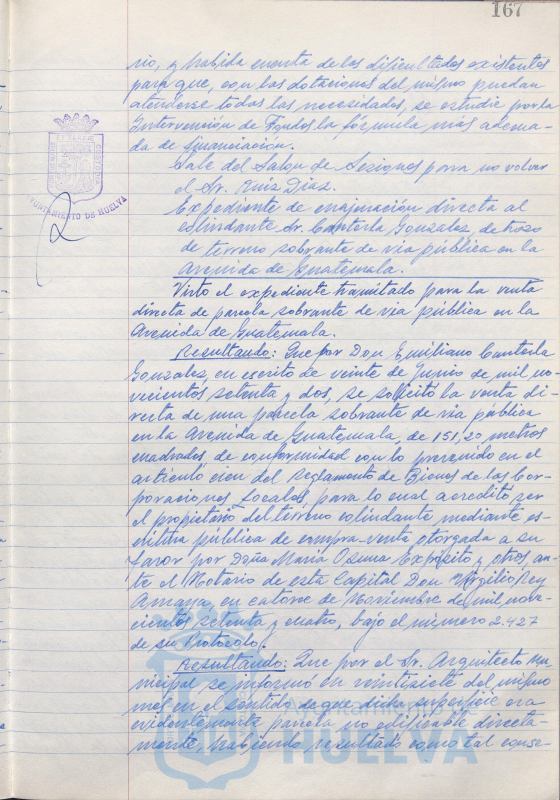 167
rio, y habida cuenta de las dificultades existentes
para que, con las dotaciones del mismo puedan
atenderse todas las necesidades, se estudie por la
Intervención de Fondos la fórmula más adecua-
da de financiación.
Sale del Salón de Sesiones para no volver
el Sr. Ruiz Diaz.
Expediente de enajenación directa al
colindante Sr. Canterla Gonzalez de trozo
de terreno sobrante de via pública en la
Avenida de Guatemala.
Visto el expediente tramitado para la venta
directa de parcela sobrante de via pública en la
Avenida de Guatemala.
Resultando: Que por Don Emiliano Canterla
Gonzalez, en escrito de veinte de Junio de mil no-
vecientos setenta y dos, se solicitó la venta di-
recta de una parcela sobrante de via pública
en la Avenida de Guatemala, de 151,20 metros
cuadrados, de conformidad con lo prevenido en el
artículo cien del Reglamento de Bienes de las Cor-
poraciones Locales, para lo cual acreditó ser
el propietario del terreno colindante mediante es-
critura pública de compra-venta otorgada a su
favor por Doña Maria Osuna Expósito y otros, an-
te el Notario de esta Capital Don Virgilio Rey
Amaya, en catorce de Noviembre de mil nove-
cientos setenta y cuatro, bajo el número 2.427
de su Protocolo.
Resultando: Que por el Sr. Arquitecto Mu-
nicipal se informó en veintisiete del mismo
mes en el sentido de que dicha superficie era
evidentemente parcela no edificable directa-
mente, habiendo resultado como tal conse-
AYUNTAMIENTO DE HUELVA
HUELVA